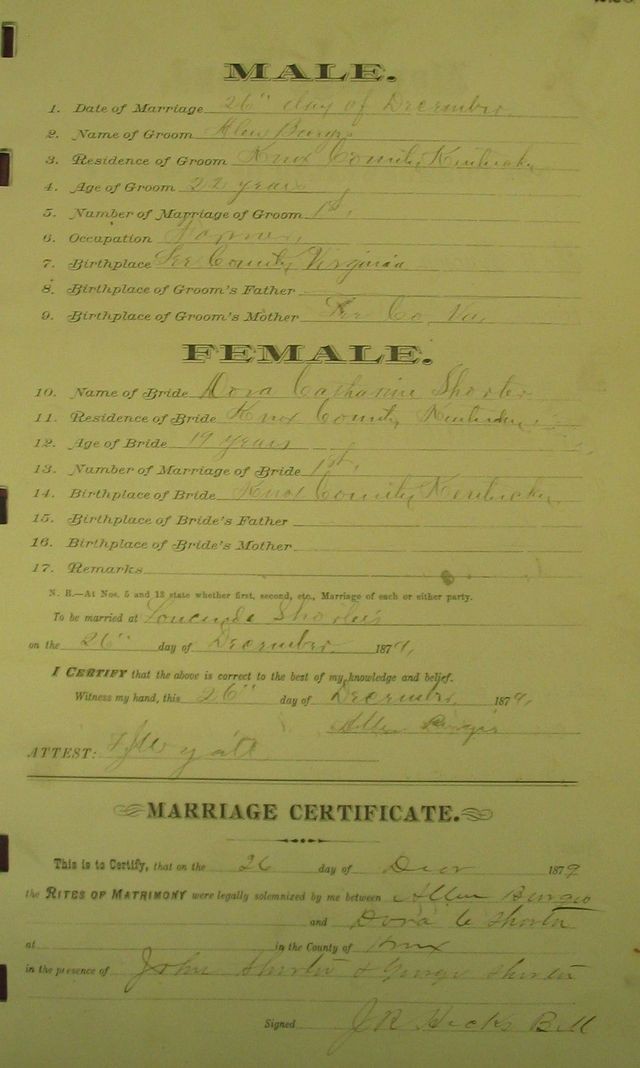 MALE.
1. Date of Marriage 26" day of December
2. Name of Groom Allen Burgis
3. Residence of Groom Knox County, Kentucky
4. Age of Groom 22 years
5. Number of Marriage of Groom 1st,
6. Occupation Farmer,
7. Birthplace Lee County, Virginia
8. Birthplace of Groom's Father
9. Birthplace of Groom's Mother Lee Co Va,
FEMALE.
10. Name of Bride Dora Catharine Shorter
11. Residence of Bride Knox County Kentucky
12. Age of Bride 19 years
13. Number of Marriage of Bride 1st,
14. Birthplace of Bride Knox County, Kentucky
15. Birthplace of Bride's Father
16. Birthplace of Bride's Mother
17. Remarks
N. B.—At Nos. 5 and 13 state whether first, second, etc., Marriage of each or either party.
To be married at Shorter's
on the 26" day of December 1879,
I CERTIFY that the above is correct to the best of my knowledge and belief.
Witness my hand, this 26" day of December, 1879,
Allen Burgis
ATTEST: Wyatt
MARRIAGE CERTIFICATE.
This is to Certify, that on the 26 day of Decr 1879
the RITES OF MATRIMONY were legally solemnized by me between Allen Burgis
and Dora C Shorter
at in the County of Knox
in the presence of John Shorter & George Shorter
Signed J R Hicks